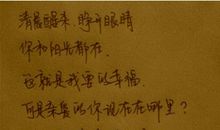 清晨醒来，睁开眼睛
你和阳光都在.
这就是我要的幸福.
可是亲爱的你现在在哪里？